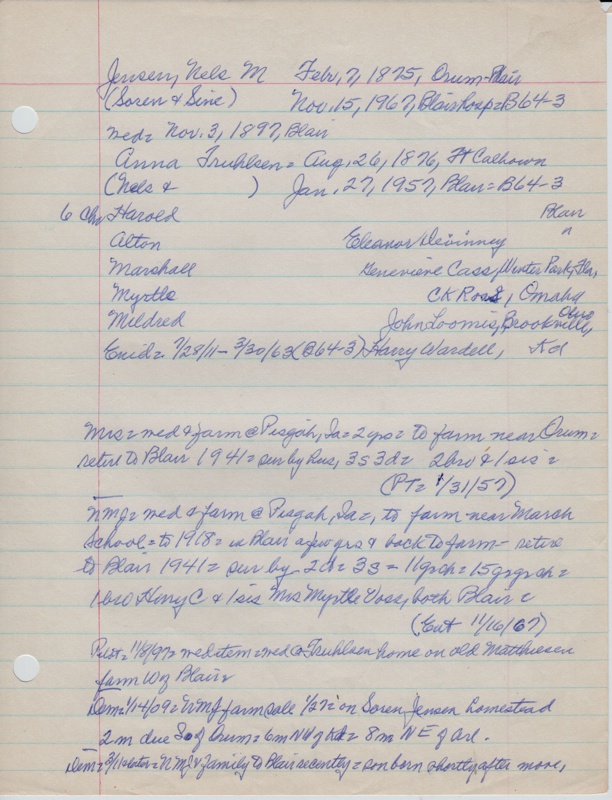 Jensen, Nels M Febr, 7, 1875, Orum-Blair
(Soren & Sine) Nov. 15, 1967, Blair hosp = B64-3
wed = Nov. 3, 1897, Blair
Anna Truhlsen = Aug. 26, 1876, Ft Calhoun
(Nels & ) Jan. 27, 1957, Blair = B64-3
6 Chn Harold Blair
Alton Eleanor Devinney "
Marshall Genevieve Cass, Winter Park, Fla,
Myrtle CK Ross, Omaha
Mildred John Loomis, Brookville, Ohio
Enid = 7/28/11 - 3/30/63 (B64-3) Harry Wardell, Kd
Mrs = wed & farm @ Pisgah, Ia = 2 yrs = to farm near Orum =
retire to Blair 1941 = sur by hus, 3s 3d = 2 bro & 1 sis =
(PT = 1/31/57)
NMJ = wed & farm @ Pisgah, Ia =, to farm near March
School = to 1918 = in Blair a few yrs & back to farm - retire
to Blair 1941 = sur by 2d = 3s = 11 grch = 15 grgrch =
1 bro Henry C & 1 sis Mrs Myrtle Voss, both Blair =
(Ent 11/16/67)
Pilot = 11/8/97 = wed item = wed @ Truhlsen home on old Matthiesen
farm W of Blair =
Dem = 1/14/09 = NMJ farm sale 1/27 = on Soren Jensen homestead
2 m due S of Orum = 6m NW of Kd = 8m NE of Arl.
Dem = 3/11 = NMJ & family to Blair recently = son born shortly after move,